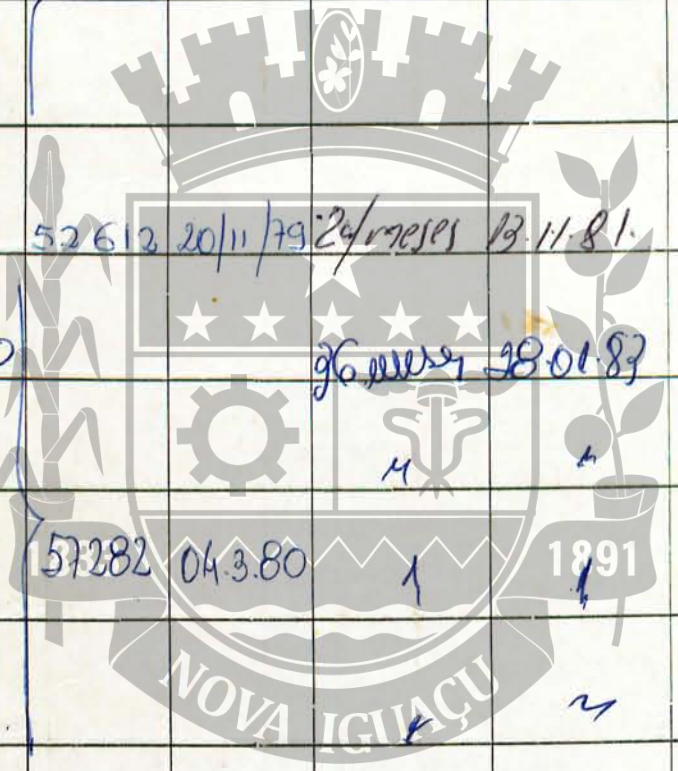 52612 20/11/79 24/meses 13.11.81.
36 meses 28.01.83
" "
57282 04.3.80 " "
" "
1833 1891
NOVA IGUAÇU